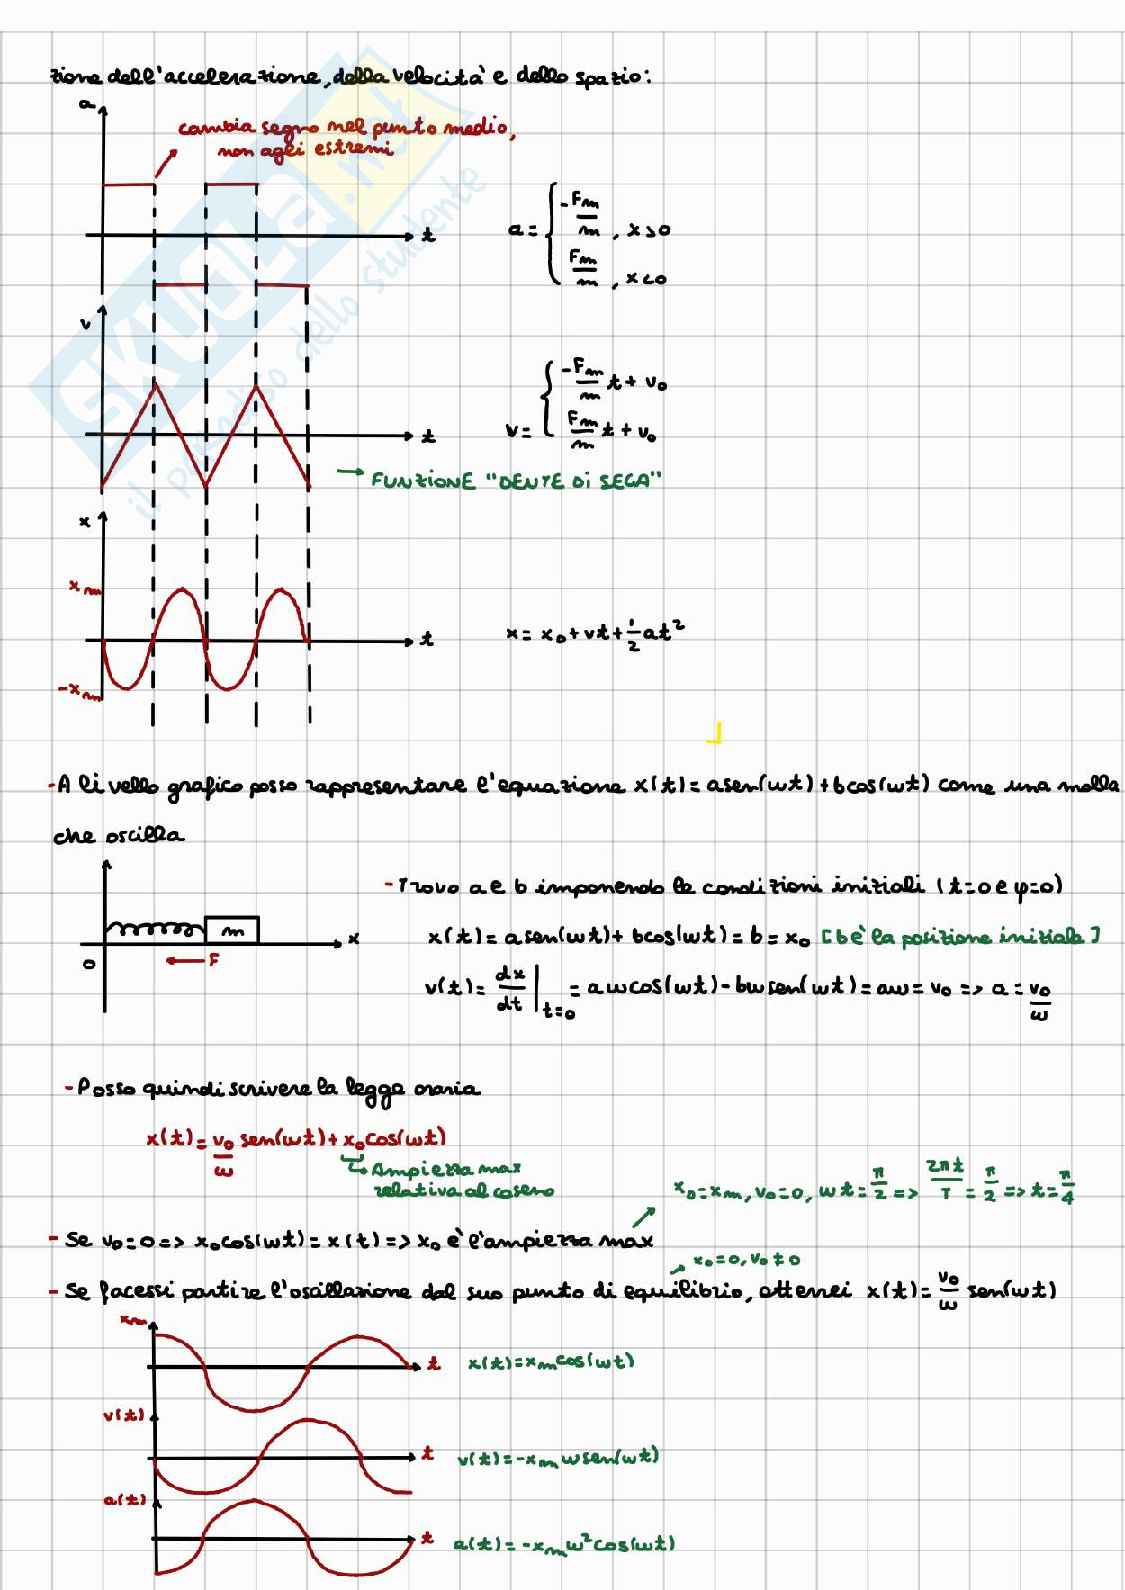 zione dell'accelerazione, della velocità e dello spazio:
a
cambia segno nel punto medio,
non agli estremi
t
a = { -Fm/m , x>0
Fm/m , x<0
v
v = { -Fm/m t + v₀
Fm/m t + v₀
t
→ FUNZIONE "DENTE Di SEGA"
x
xm
t
x = x₀ + vt + 1/2 at²
-xm
- A livello grafico posso rappresentare l'equazione x(t) = asen(ωt) + bcos(ωt) come una molla
che oscilla
- Trovo a e b imponendo le condizioni iniziali (t=0 e φ=0)
m
x
0
F
x(t) = asen(ωt) + bcos(ωt) = b = x₀ [b è la posizione iniziale]
v(t) = dx/dt |t=0 = aωcos(ωt) - bωsen(ωt) = aω = v₀ => a = v₀/ω
- Posso quindi scrivere la legge oraria
x(t) = v₀/ω sen(ωt) + x₀cos(ωt)
Ampiezza max
relativa al coseno
x₀ = xm, v₀ = 0, ωt = π/2 => 2πt/T = π/2 => t = π/4
- Se v₀ = 0 => x₀cos(ωt) = x(t) => x₀ è l'ampiezza max
x₀ = 0, v₀ ≠ 0
- Se facessi partire l'oscillazione dal suo punto di equilibrio, otterrei x(t) = v₀/ω sen(ωt)
xm
t
x(t) = xmcos(ωt)
v(t)
t
v(t) = -xmωsen(ωt)
a(t)
t
a(t) = -xmω²cos(ωt)
SKUOLA.net
il paradiso dello studente